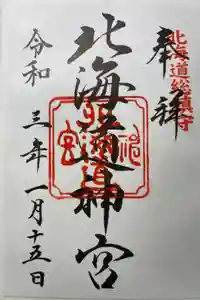 北海道総鎮守
奉拝
北海道神宮
令和三年一月十五日